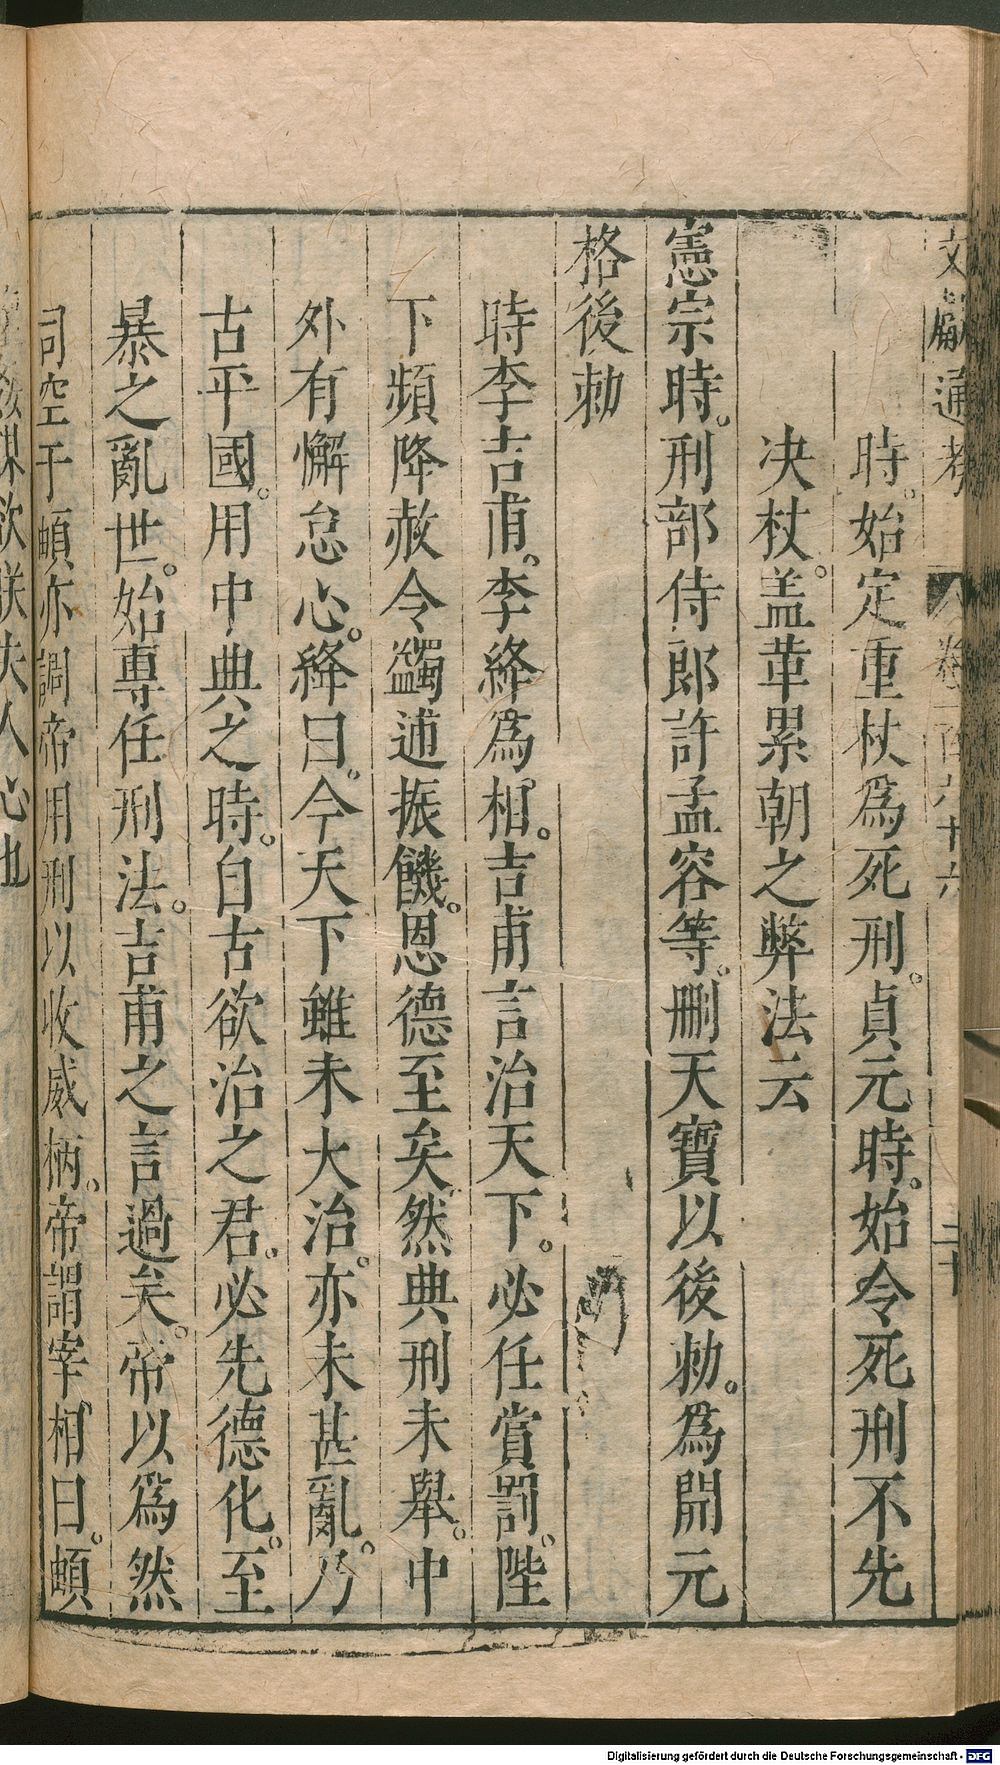 文獻通考 卷一百六十六 二十
時。始定重杖爲死刑。貞元時。始令死刑不先
决杖。盖革累朝之弊法云
憲宗時。刑部侍郎許孟容等。刪天寶以後勅。爲開元
格後勅
時李吉甫。李絳爲相。吉甫言治天下。必任賞罰。陛
下頻降赦令蠲逋振饑。恩德至矣。然典刑未舉。中
外有懈怠心。絳曰。今天下雖未大治。亦未甚亂。乃
古平國。用中典之時。自古欲治之君。必先德化。至
暴之亂世。始專任刑法。吉甫之言過矣。帝以爲然
司空于頔亦諷帝用刑以收威柄。帝謂宰相曰。頔
姦謀欲朕失人心也
Digitalisierung gefördert durch die Deutsche Forschungsgemeinschaft - DFG